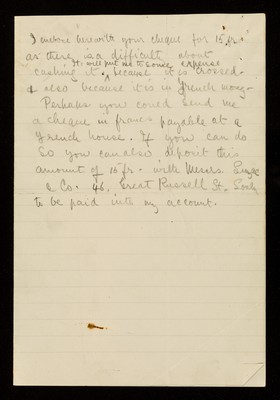 I enclose herewith your cheque for 15 frs.
as there is a difficult about
It will put me to some expense
cashing it, because it is crossed -
& also because it is in french money -
Perhaps you could send me
a cheque in francs payable at a
French house. If you can do
So you can also deposit this
amount of 15 fr. with Messrs.
& Co. 46, Great Russell St.
to be paid into my account.